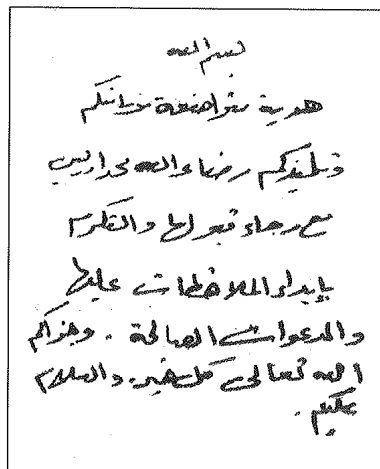 بسم الله
هدية متواضعة من ابنكم
وتلميذكم رضاء الله
مع رجاء قبولها والتكرم
بإبداء الملاحظات عليها
والدعوات الصالحة . وجزاكم
الله تعالى كل خير. والسلام
عليكم .